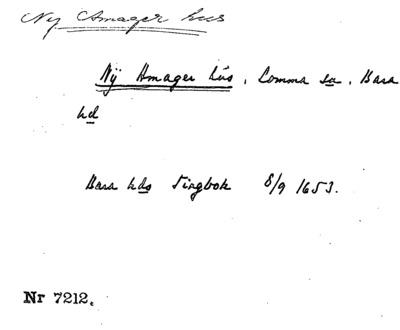 Ny Amager hus
Nÿ Amager hus, Lomma sn, Bara
hd
Bara hds Tingbok 8/9 1653.
Nr 7212.